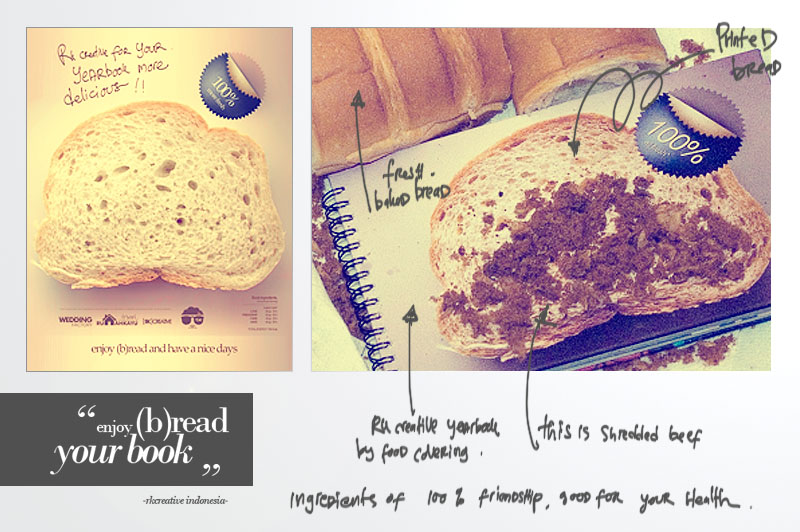 Rk creative for your
YEARBOOK more
delicious !!
100%
WEDDING
FACTORY
RUMAHKAYU
RKCREATIVE
enjoy (b)read and have a nice days
Printed
bread
100%
fresh
baked bread
“ enjoy (b)read
your book ”
-rkcreative indonesia-
Rk creative yearbook
by food covering .
this is shredded beef
Ingredients of 100% friendship, good for your Health .